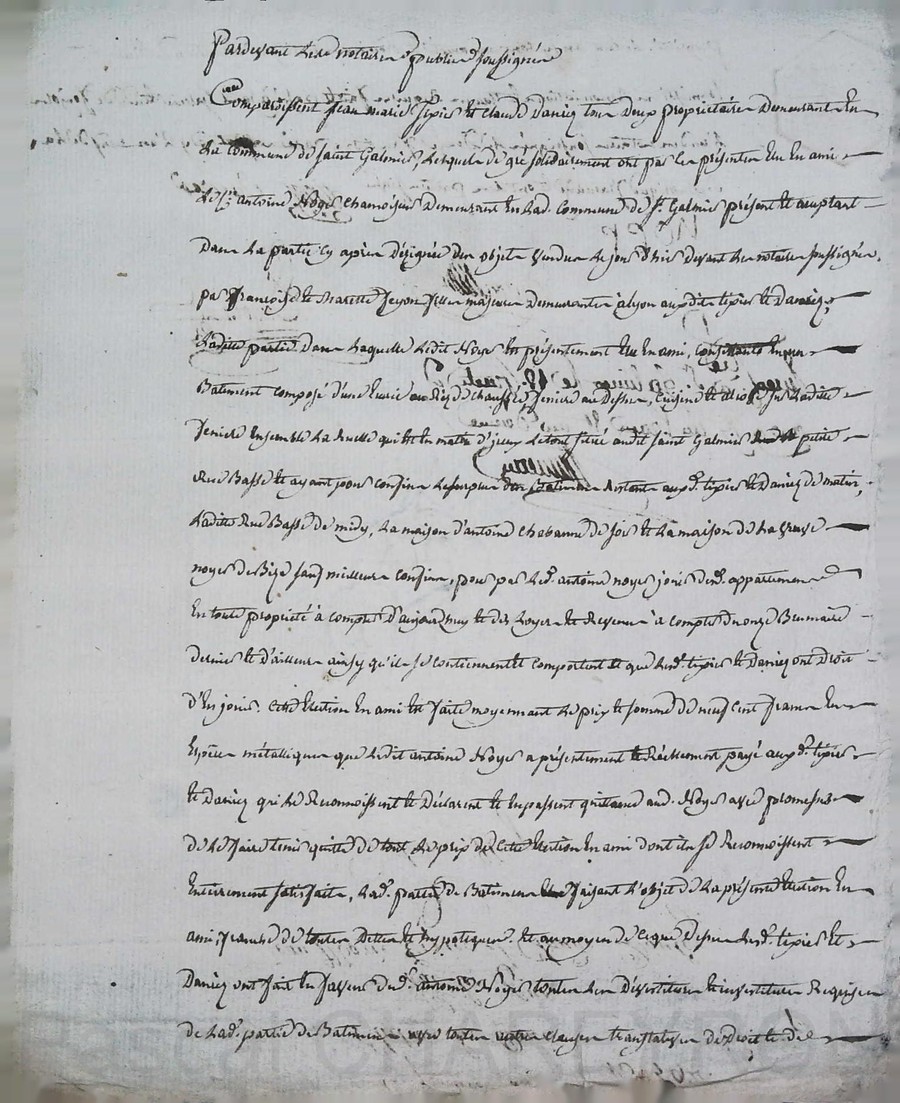 Pardevant les notaires publics soussignés
Comparoissent Jean Marie Tepier et Claude Daniez tous deux propriétaires demeurants en
la commune de Saint Galmier, lesquels de gré solidairement ont par les présentes élu en ami
le Sr antoine Noyer chamoiseur demeurant en lad. commune de St. Galmier présent et acceptant
dans la partie cy après désignée des objets vendus le jour d'hier devant les notaires soussignés,
par Françoise et Mariette filles majeures demeurantes à lyon auxdits tepier et Daniez,
Ladite partie dans laquelle ledit Noyer est présentement élu en ami, en un
Batiment composé d'une Ecurie au Rez de chaussée, feniere au dessus, Cuisine et sur ladite
feniere Ensemble la Ruelle qui est en matin d'iceux le tout situé audit Saint Galmier petite
Rue Basse et ayant pour confins le surplus des Batimens restant auxd. tepier et Daniez de matin,
Ladite Rue Basse de midy, La maison d'antoine chabanne de soir et la maison de la veuve
noyer de Bize sauf meilleurs confins, pour par led. antoine noyer jouir desd. appartemens
En toute propriété à compter d'aujourdhuy et des Loyers et Revenus à compter du onze Brumaire
dernier et d'ailleurs ainsy qu'ils se contiennent et comportent et que lesd. tepier et Daniez ont droit
d'En jouir. Cette Election En ami est faite moyennant le prix et somme de neuf cent francs En
Espèces métalliques que ledit antoine Noyer a présentement et Réellement payé auxd. tepier
et Daniez qui le Reconnoissent et Déclarent et En passent quittance aud. Noyer avec promesse
de le faire tenir quitte de tout le prix de cette Election En ami dont ils se Reconnoissent
Entièrement satisfaits, Lad. partie de Batimens faisant l'objet de la présente Election En
ami, franche de toutes Dettes et hypoteques. Et au moyen de ce que dessus lesd. tepier et
Daniez ont fait En faveur dud. antoine Noyer toutes les Dévestitures et investitures Requises
de lad. partie de Batimens avec toutes autres clauses translatives de Droit et de